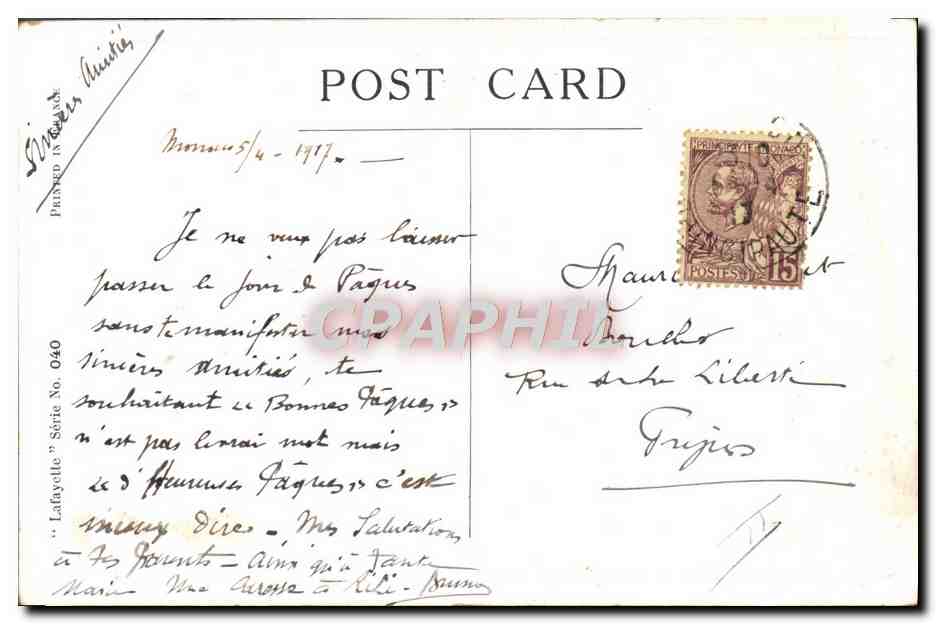 POST CARD
Sincères Amitiés
PRINTED IN FRANCE
" Lafayette " Série No. 040
Monaco 5/4 - 1917. —
Je ne veux pas laisser
passer le jour de Pâques
sans te manifester mes
sincères amitiés, te
souhaitant de "Bonnes Pâques"
n'est pas le vrai mot mais
de d'"Heureuses Pâques" c'est
mieux dire - Mes Salutations
à Tes Parents - Ainsi qu'à Tante
Marie Une Caresse à Lili - Bruno
PRINCIPAUTÉ DE MONACO
POSTES
15
PAUTE
Rue de la Liberté
Fréjus
CPAPHIL